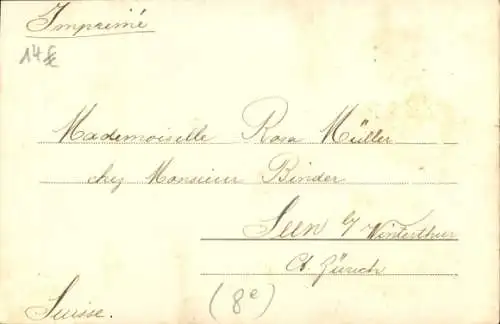 Imprimé
14€
Mademoiselle Rosa Müller
chez Monsieur Binder
Seen b/ Winterthur
Ct. Zürich
(8e)
Suisse.